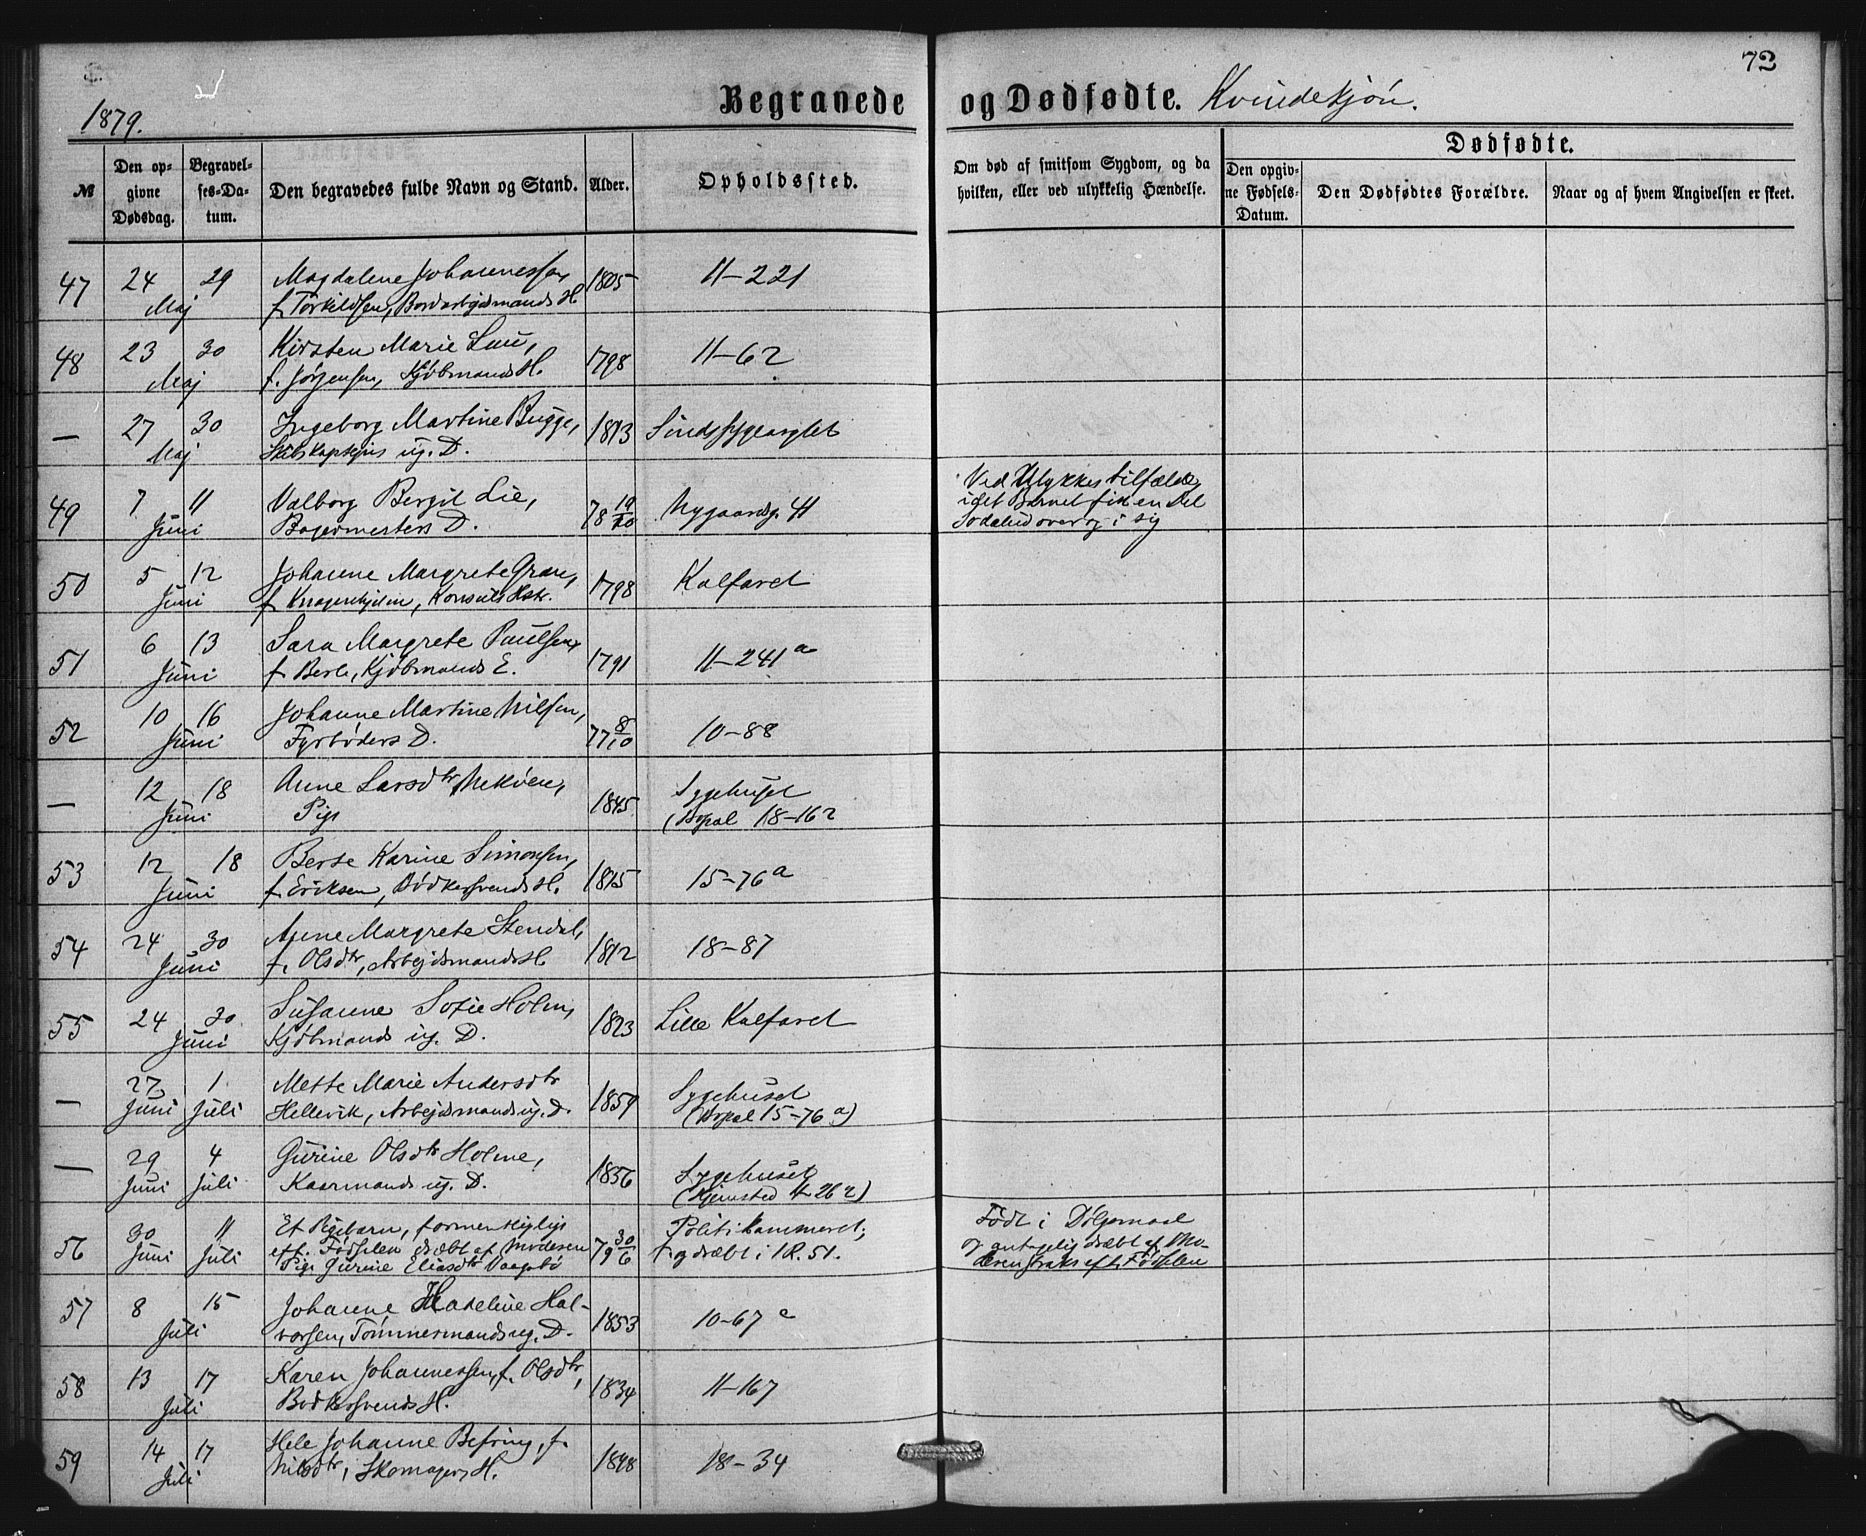 72
1879.
Begravede og Dødfødte. Kvindekjøn.
№
Den opgivne Dødsdag.
Begravelses-Datum.
Den begravedes fulde Navn og Stand.
Alder.
Opholdssted.
Om død af smitsom Sygdom, og da hvilken, eller ved ulykkelig Hændelse.
Dødfødte.
Den opgivne Fødsels-Datum.
Den Dødfødtes Forældre.
Naar og af hvem Angivelsen er skeet.
47 24 29 Magdalene Johannessen, 1805 11-221
Maj f. Torkildsen, Bordarbejdsmands H
48 23 30 Kirsten Marie Lau, 1798 11-62
Maj f. Jørgensen, Kjøbmands H.
— 27 30 Ingeborg Martine Bugge, 1813 Sindssygeasylet
Maj ug. D.
49 7 11 Valborg Bergit Lie, 78 19/10 Nygaardsg. 41
Juni Bagermesters D.
Ved Ulykkestilfælde,
idet Barnet fik en Del
Sodalud over og i sig
50 5 12 Johanne Margrete Gran, 1798 Kalfaret
Juni f. Konsuls
51 6 13 Sara Margrete Paulsen, 1791 11-241a
Juni f. Berle, Kjøbmands E.
52 10 16 Johanne Martine Nilsen, 77 8/10 10-88
Juni Fyrbøders D.
— 12 18 Anne Larsdtr 1845 Sygehuset
Juni Pige (Bopæl 18-162
53 12 18 Berte Karine Simonsen, 1815 15-76a
Juni f. Eriksen, Bødkersvends H.
54 24 30 Anne Margrete Stendal, 1812 18-87
Juni f. Olsdtr, Arbejdsmands H.
55 24 30 Susanne Sofie Holm, 1823 Lille Kalfaret
Juni Kjøbmands ug. D.
— 27 1 Mette Marie Andersdtr 1859 Sygehuset
Juni Juli Hellevik, Arbejdsmands ug. D. (Bopæl 15-76a)
— 29 4 Gurine Olsdtr Holme, 1856 Sygehuset
Juni Juli Kaarmands ug. D. (Hjemsted
56 30 11 Et Pigebarn, formentligligt 79 30/6 Politikammeret;
Juni Juli eft. Fødselen dræbt af Moderen f. og dræbt i 1R. 51.
Pige Gurine Eliasdtr Vaagsbø
Født i Dølgsmaal
og antagelig dræbt af Mo-
deren straks eft. Fødselen
57 8 15 Johanne Madeline Hal- 1853 10-67
Juli vorsen, Tømmermands ug. D.
58 13 17 Karen Johannessen, f. Olsdtr, 1834 11-167
Juli Bødkersvends H.
59 14 17 Johanne Befring, f. 1848 18-34
Juli Nilsdtr, Skomagers H.